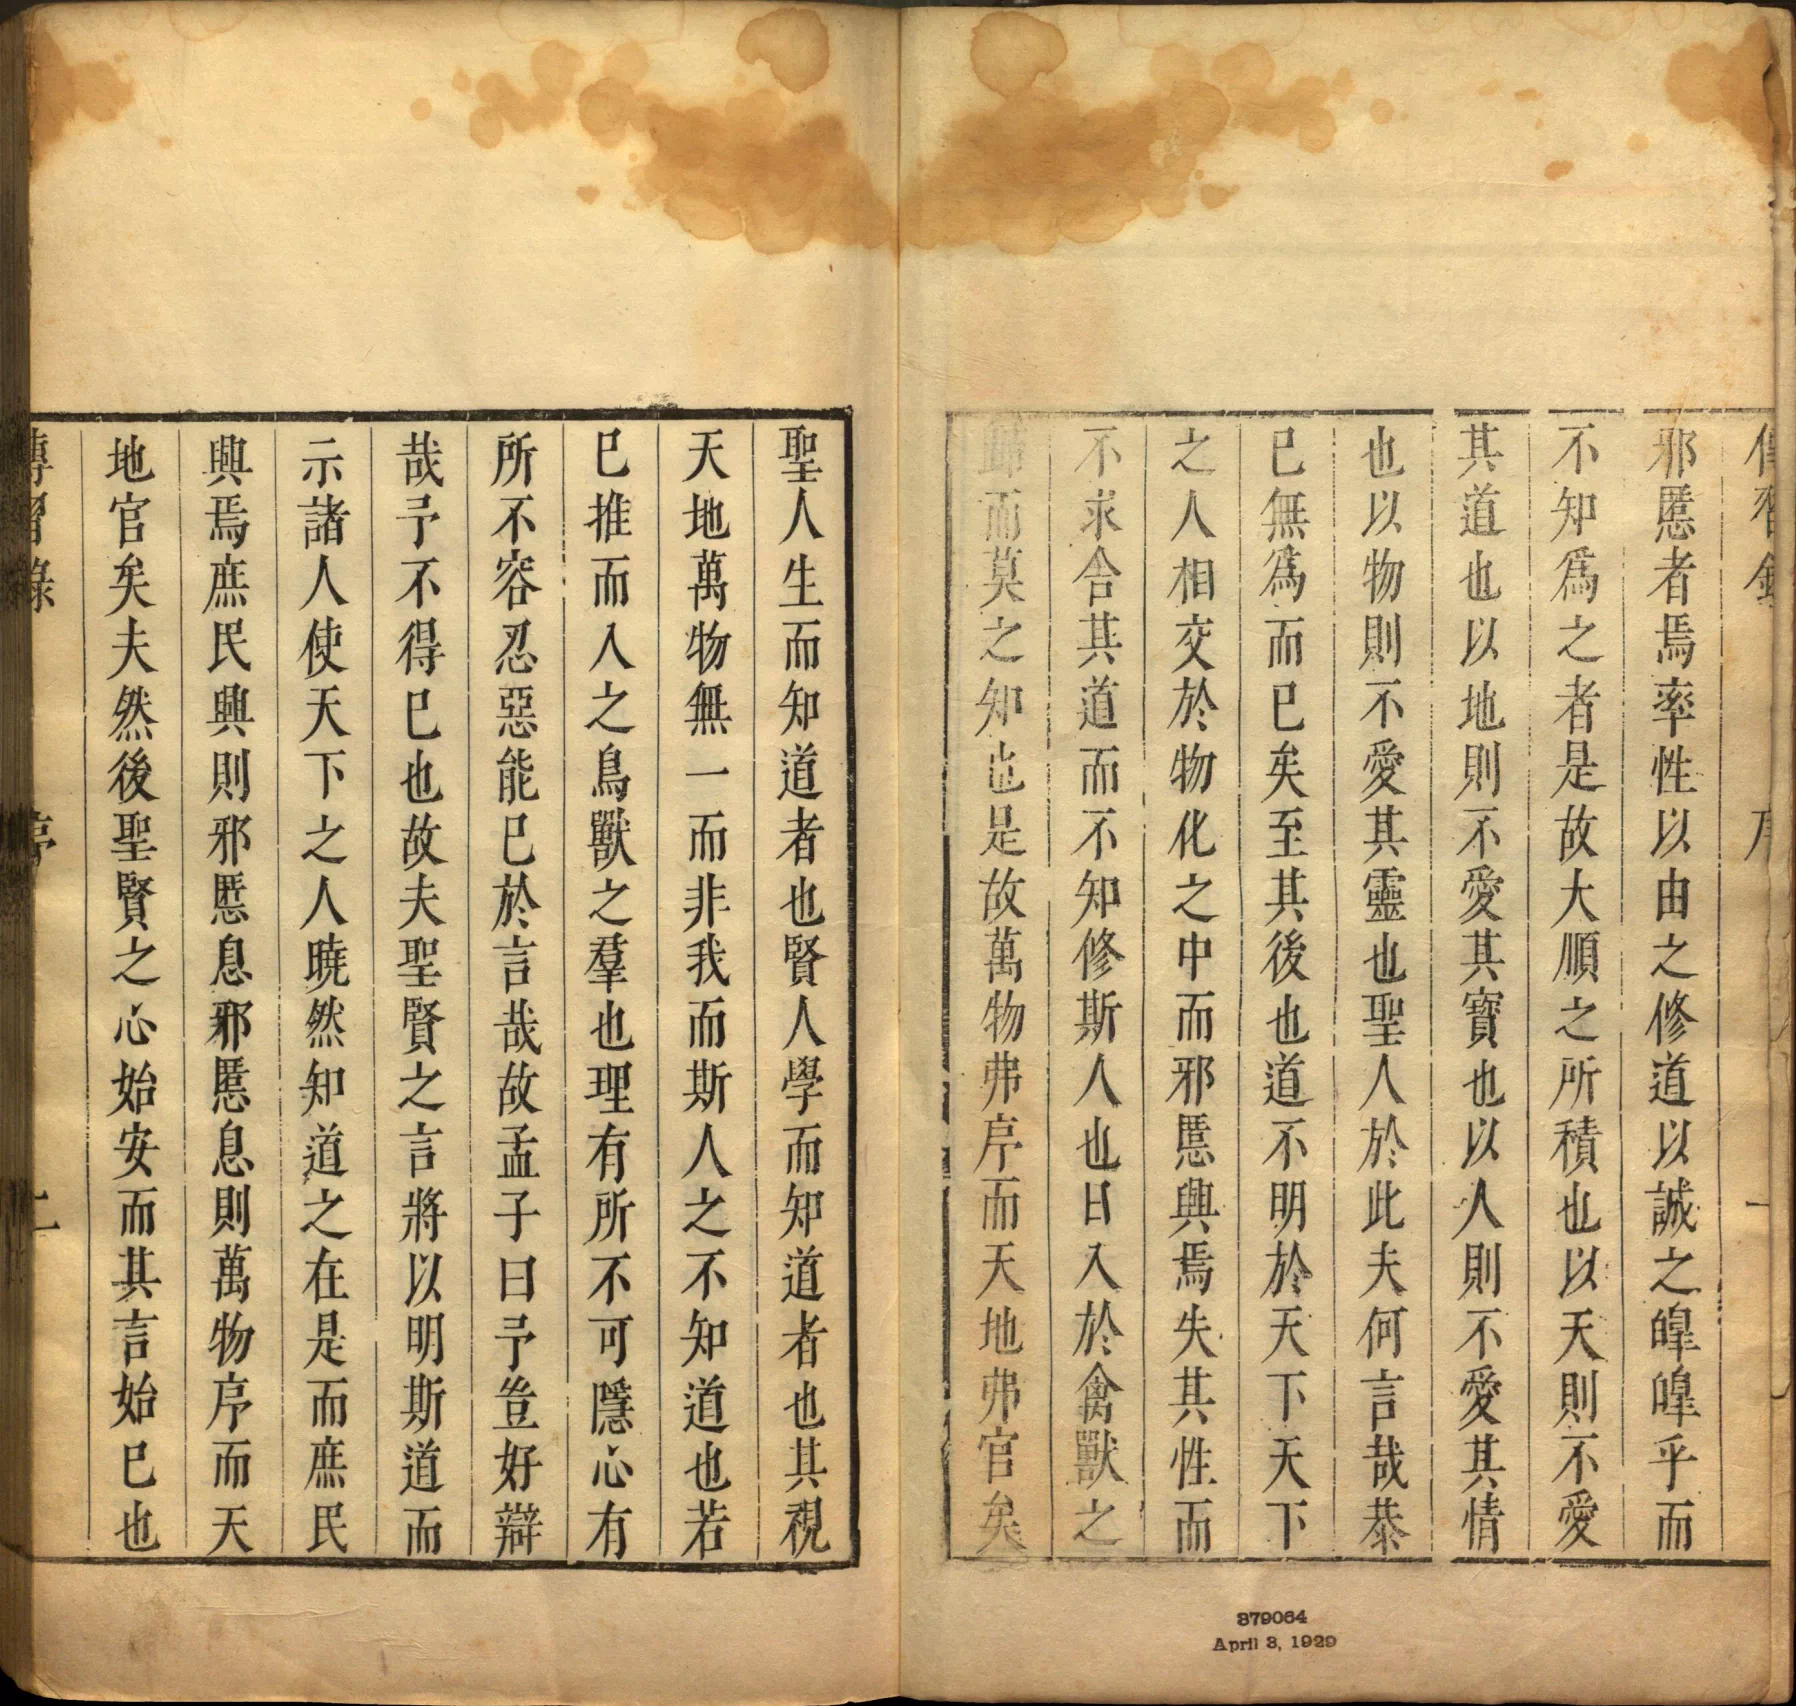 傳習錄 序 一
邪慝者焉率性以由之修道以誠之皥皥乎而
不知爲之者是故大順之所積也以天則不愛
其道也以地則不愛其寶也以人則不愛其情
也以物則不愛其靈也聖人於此夫何言哉恭
已無爲而已矣至其後也道不明於天下天下
之人相交於物化之中而邪慝興焉失其性而
不求舎其道而不知修斯人也日入於禽獸之
歸而莫之知也是故萬物弗序而天地弗官矣
聖人生而知道者也賢人學而知道者也其視
天地萬物無一而非我而斯人之不知道也若
已推而入之鳥獸之羣也理有所不可隱心有
所不容忍惡能已於言哉故孟子曰予豈好辯
哉予不得已也故夫聖賢之言將以明斯道而
示諸人使天下之人曉然知道之在是而庶民
興焉庶民興則邪慝息邪慝息則萬物序而天
地官矣夫然後聖賢之心始安而其言始已也
傳習錄 序 二
379064
April 3, 1929